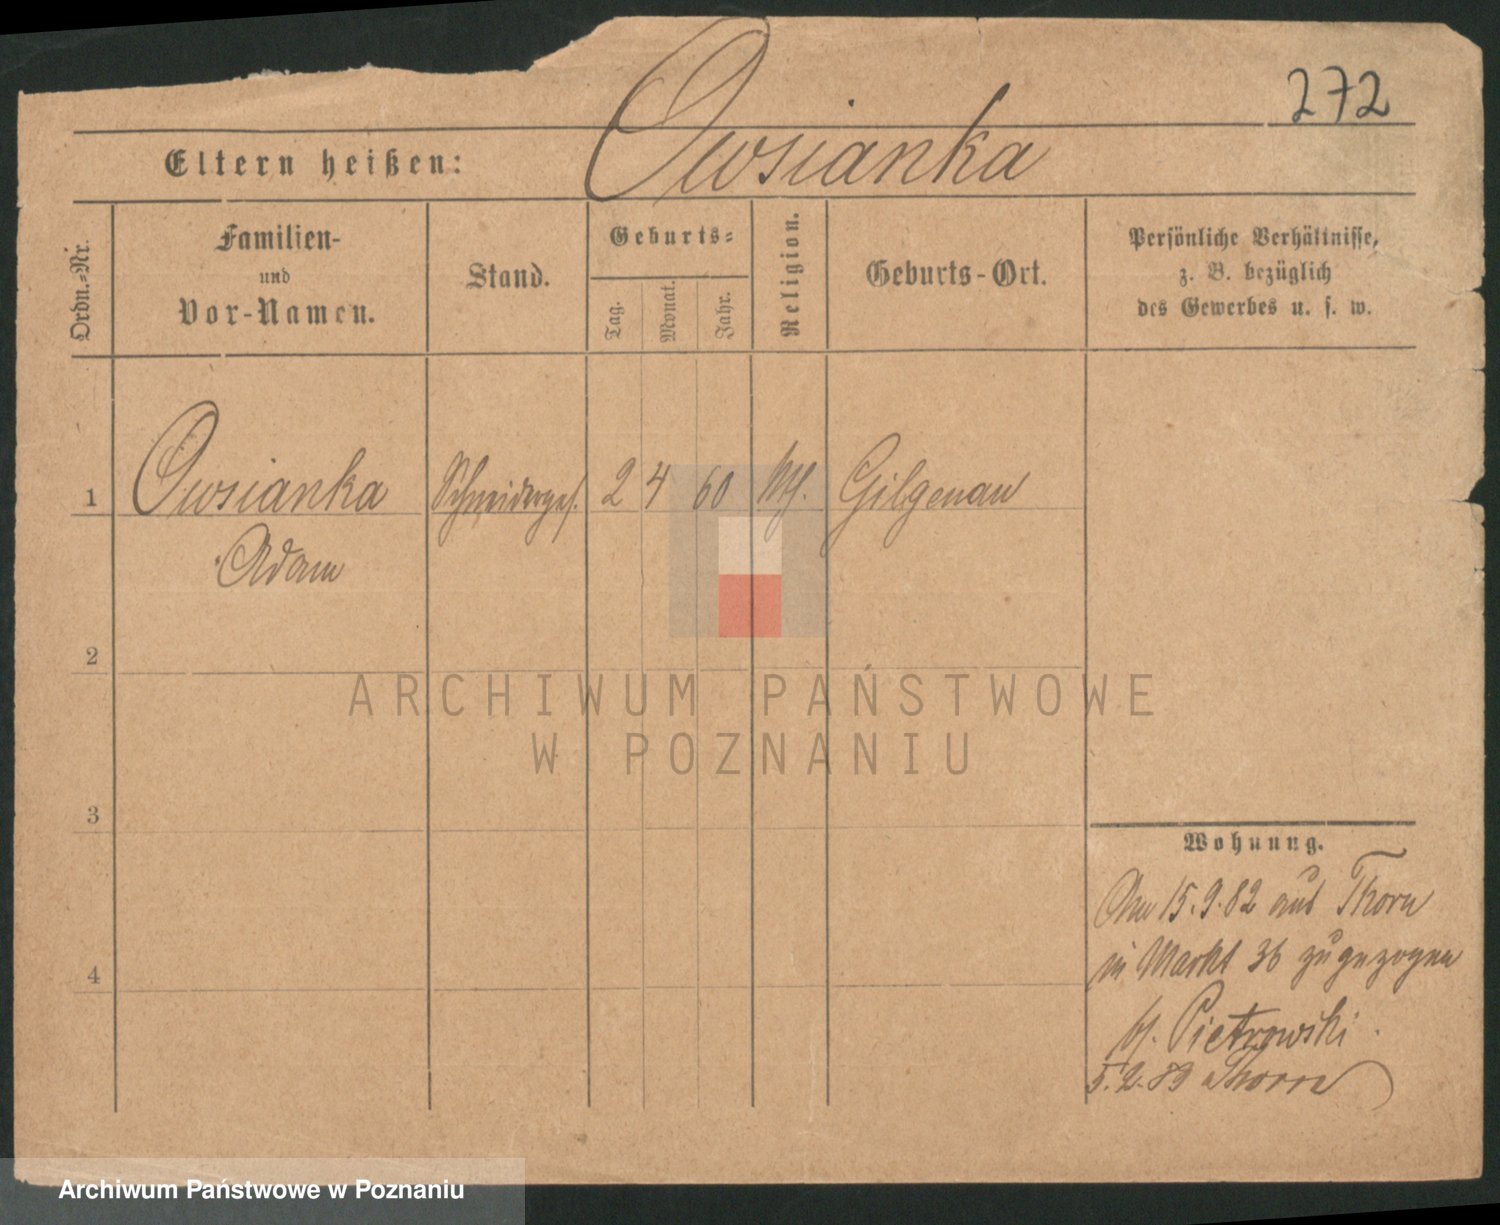 272
Eltern heißen: Owsianka
Ordn.-Nr.
Familien-
und
Vor-Namen.
Stand.
Geburts-
Tag.
Monat.
Jahr.
Religion.
Geburts-Ort.
Persönliche Verhältnisse,
z. B. bezüglich
des Gewerbes u. s. w.
1 Owsianka Schneiderges. 2 4 60 kth. Gilgenau
Adam
2
3
4
Wohnung.
Am 15.9.82 aus Thorn
in Markt 36 zugezogen
Pietrowski
5.2.89 Thorn
ARCHIWUM PAŃSTWOWE
W POZNANIU
Archiwum Państwowe w Poznaniu